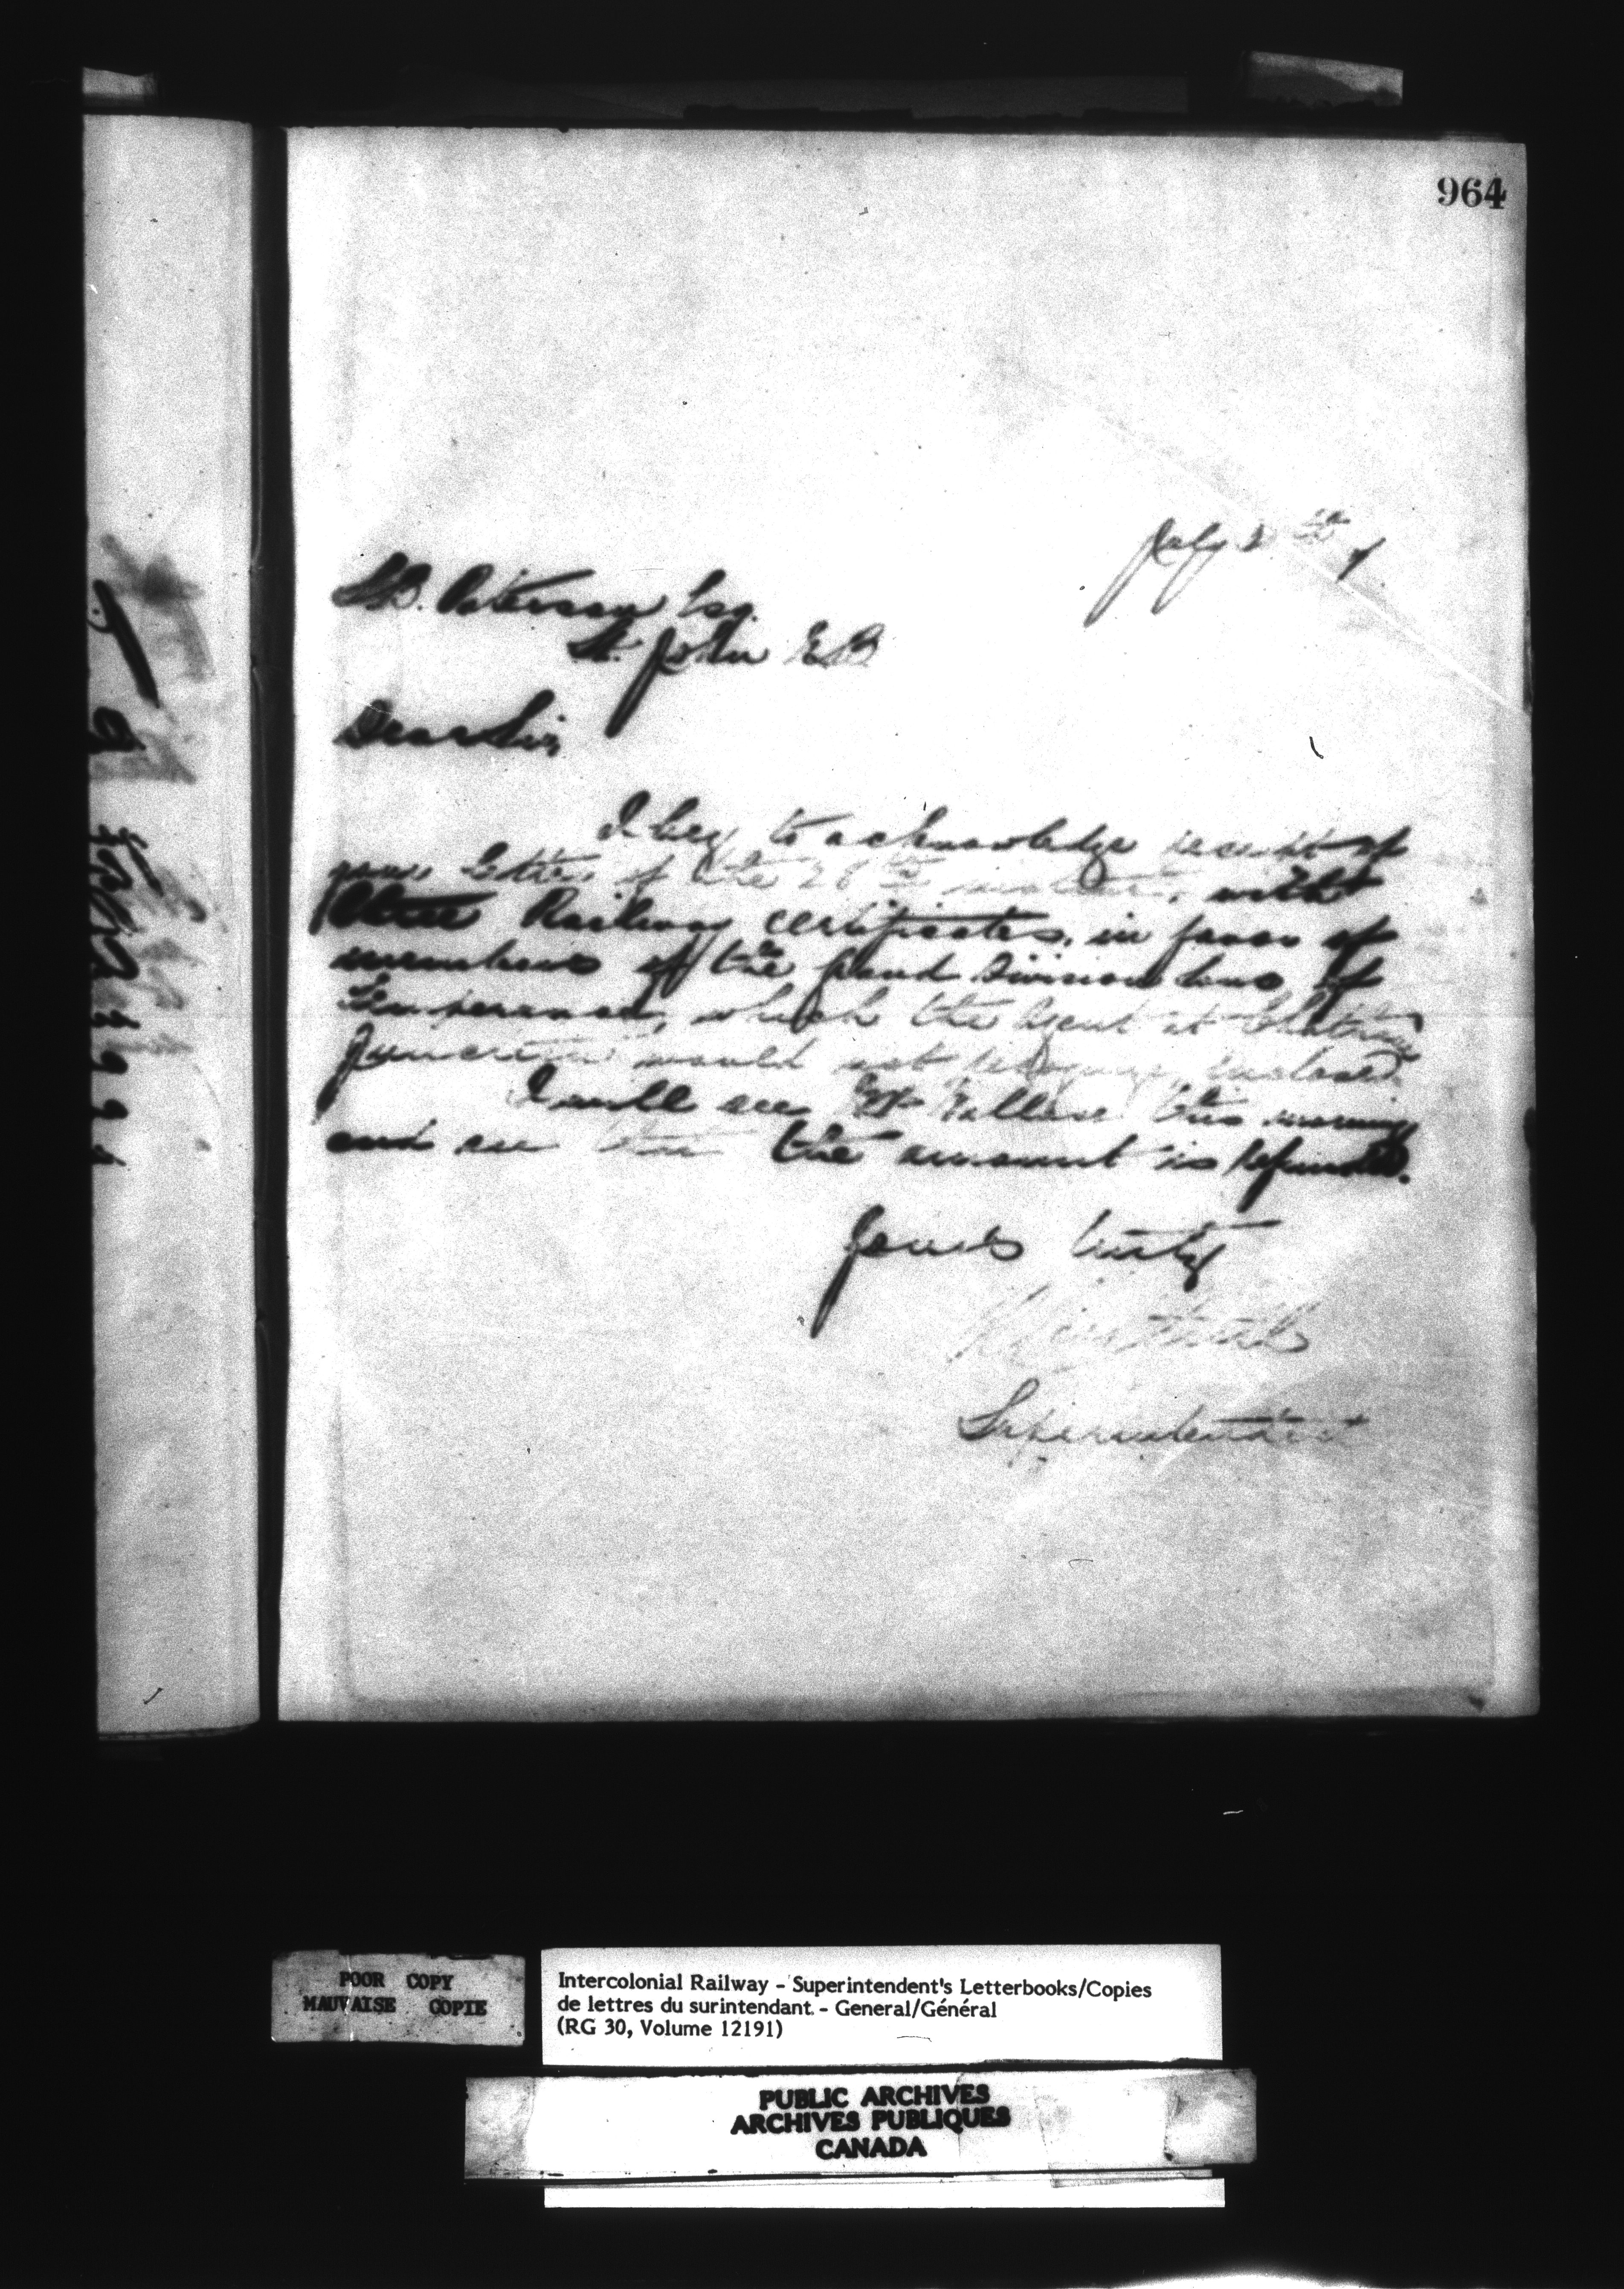 964
July 2
S.B. Paterson Esq.
St. John
Dear Sir,
I beg to acknowledge receipt of
your letter of the 26th with
three Railway certificates, in favor of
members of the Grand Division Sons of
Temperance, which the Agent at Chatham
Junction would not recognize, enclosed.
I will see this morning
and see that the amount is refunded.
Yours truly
Superintendent
POOR COPY
MAUVAISE COPIE
Intercolonial Railway - Superintendent's Letterbooks/Copies
de lettres du surintendant. - General/Général
(RG 30, Volume 12191)
PUBLIC ARCHIVES
ARCHIVES PUBLIQUES
CANADA